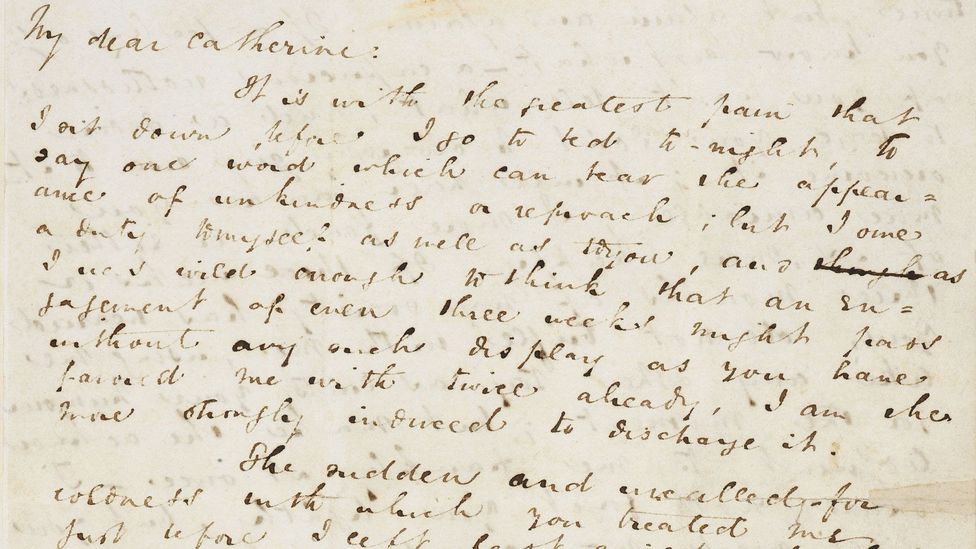 My dear Catherine:
It is with the greatest pain that
I sit down, before I go to bed to-night, to
say one word which can bear the appear=
ance of unkindness or reproach; but I owe
a duty to myself as well as to you, and though as
I was wild enough to think that an en=
gagement of even three weeks might pass
without any such display as you have
favored me with twice already, I am the
more strongly induced to discharge it.
The sudden and uncalled-for
coldness with which you treated me
just before I left last night